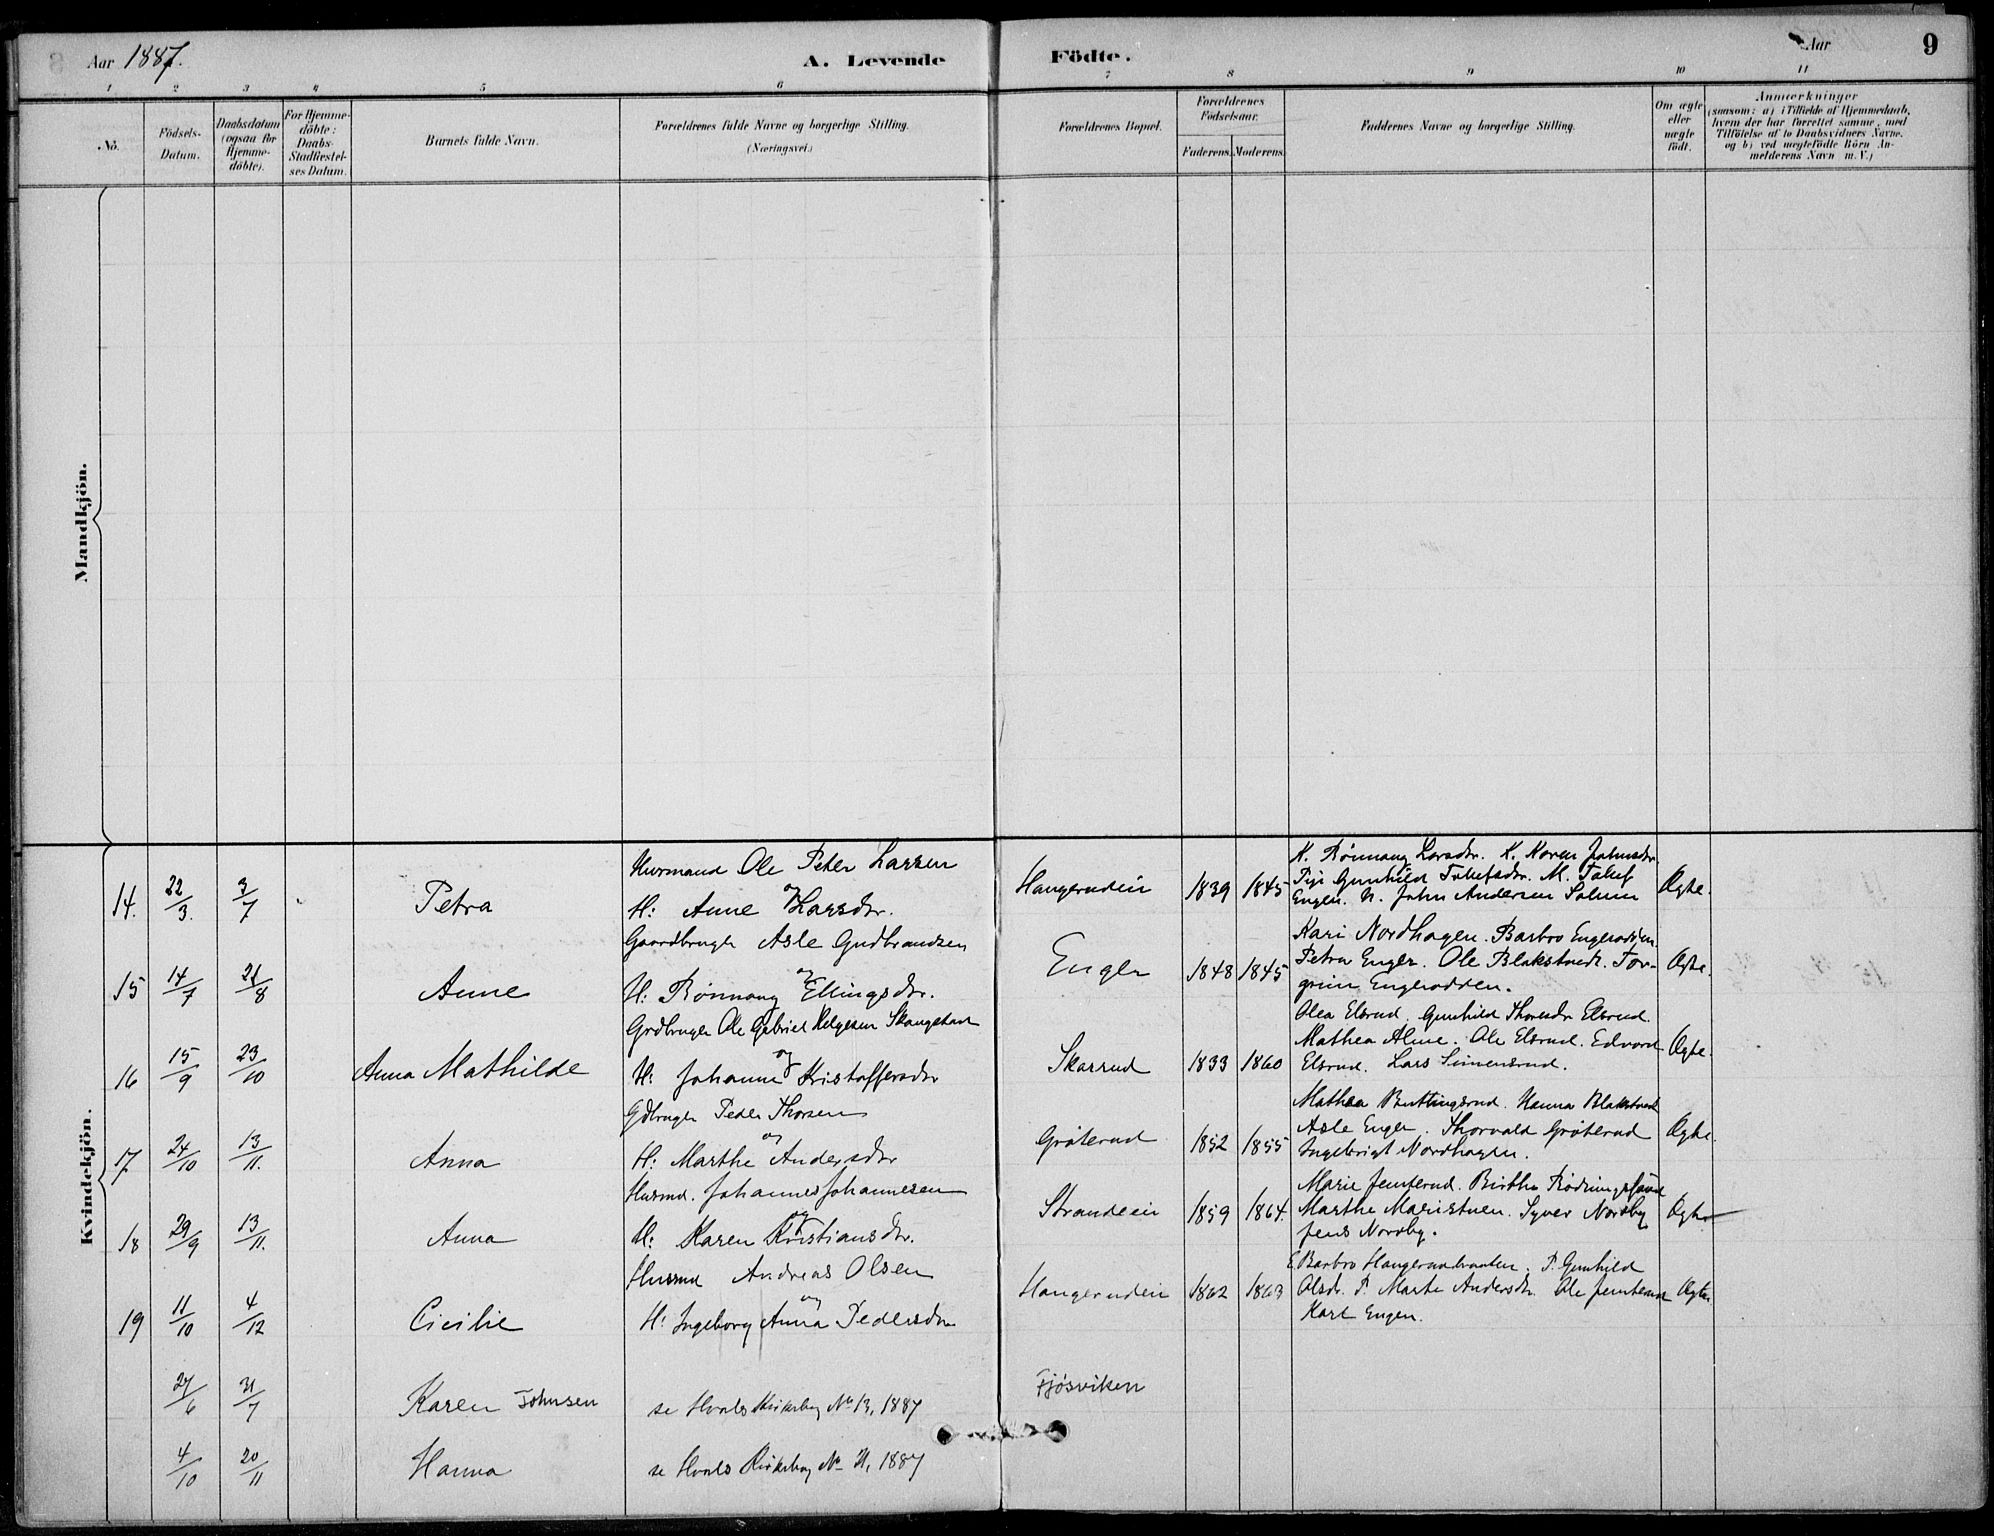 Aar 1887.
A. Levende Födte.
Aar
9
1 2 3 4 5 6 7 8 9 10 11
No.
Födsels-Datum.
Daabsdatum (ogsaa for Hjemme-döbte).
For Hjemme-döbte: Daabs-Stadfæstel-ses Datum.
Barnets fulde Navn.
Forældrenes fulde Navne og borgerlige Stilling.
(Næringsvei.)
Forældrenes Bopæl.
Forældrenes Födselsaar.
Faderens. Moderens.
Faddernes Navne og borgerlige Stilling.
Om ægte eller uægte födt.
Anmærkninger
(saasom: a) i Tilfælde af Hjemmedaab,
hvem der har forrettet samme, med
Tilföielse af to Daabsvidners Navne.
og b) ved uægtefödte Börn An-
melderens Navn m. V.)
Mandkjön.
Kvindekjön.
Husmand Ole Peter Larsen
14. 22/3. 3/7 Petra og
H: Anne Larsdtr. Haugerudein 1839 1845 Ægte.
K. Rönnaug Larsdtr. K. Karen Johnsdtr
Pige Gunhild Tolefsdtr. M. Tolef
Engen. M. John Andersen Solum
Gaardbruger Asle Gudbrandsen
15 14/7 21/8 Anne og
H: Rönnaug Ellingsdtr. Enger 1848 1845 Ægte.
Kari Nordhagen. Barbro Engerodden.
Petra Enger. Ole Blakstvedt. Tor-
grim Engerodden.
Grdbruger Ole Gabriel Helgesen Skaugstad
16 15/9 23/10 Anna Mathilde og
H: Johanne Kristoffersdtr Skarrud 1833 1860 Ægte.
Olea Elsrud. Gunhild Thorsdtr Elsrud.
Mathea Alme. Ole Elsrud. Edvard
Elsrud. Lars Simensrud.
Gdbruger Peder Thorsen
17 24/10 13/11. Anna og
H: Marthe Andersdtr Gröterud 1852 1855 Ægte.
Mathea Buttingsrud. Hanna Blakstvedt
Asle Enger. Thorvald Gröterud
Ingebrigt Nordhagen.
Husmd. Johannes Johannesen
18 29/9 13/11. Anna og
H: Karen Kristiansdtr. Strandein 1859 1864. Ægte
Marie Jenserud. Birthe
Marthe Maristuen. Syver Nordby
Jens Nordby.
Husmd Andreas Olsen
19 11/10 4/12 Cicilie og
H: Ingeborg Anna Pedersdtr Haugerudein 1862 1863 Ægte
E. Barbro Haugerudbraaten. P. Gunhild
Olsdtr. P. Marte Andersdtr. Ole
Karl Engen.
27/6 31/7 Karen Johnsen se Hvals Kirkebog No 13, 1887 Fjösviken
4/10 20/11 Hanna se Hvals Kirkebog No 21, 1887